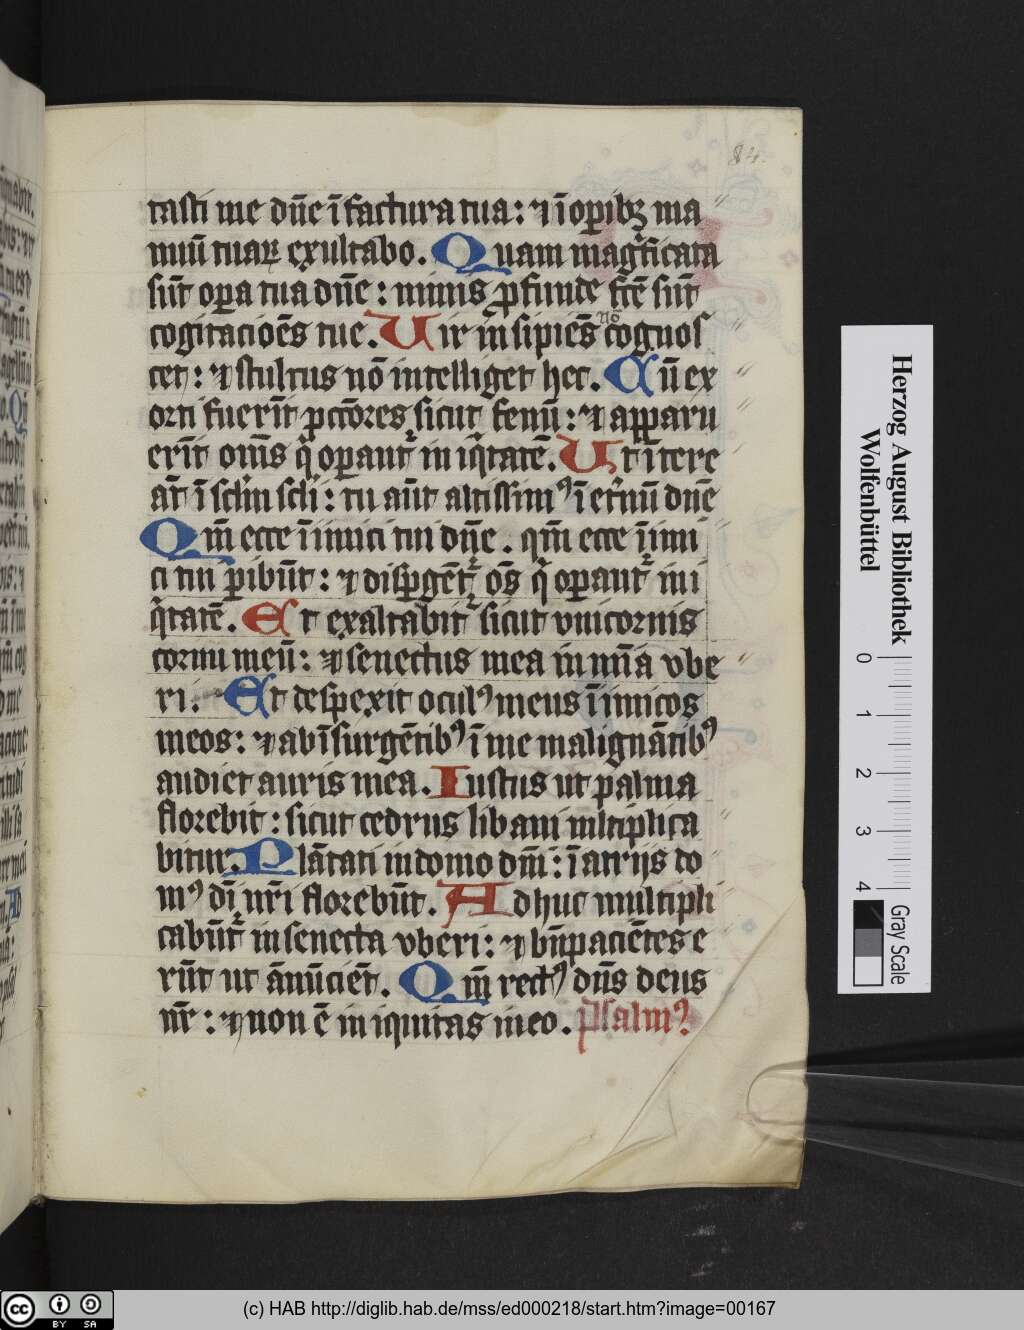 84.
tasti me dn̄e ī factura tua: ⁊ ī op̄ibꝫ ma
nuū tuaꝝ exultabo. Quam magͥficata
sūt oꝑa tua dn̄e: nimis ꝓfunde fc̄e sūt
cogitacioēs tue. Uir insipiēs nō cognos
cet: ⁊ stultus nō intelliget hec. Cū ex
orti fuerīt pctōres sicut fenū: ⁊ apparu
erīt om̄s qͥ oꝑant᷑ iniqͥtatē. Ut ītere
āt ī sclm̄ scl̓i: tu aūt altissimꝰ ī et̓nū dn̄e
Qm̄ ecce īimici tui dn̄e. qm̄ ecce īimi
ci tui ꝑibūt: ⁊ disꝑgēt᷑ oēs qͥ oꝑant᷑ ini
qͥtatē. Et exaltabit᷑ sicut vnicornis
cornu meū: ⁊ senectus mea in mīa vbe
ri. Et despexit oculꝰ meus īimicos
meos: ⁊ ab īsurgētibꝰ ī me malignātibꝰ
audiet auris mea. Iustus ut palma
florebit: sicut cedrus libani mltiplica
bitur. Plātati in domo dn̄i: ī atrijs do
mꝰ dī nr̄i florebūt. Adhuc multipli
cabūt᷑ in senecta vberi: ⁊ bn̄ paciētes e
rūt ut ānūciēt. Qm̄ rectꝰ dn̄s deus
nr̄: ⁊ non ē iniquitas in eo. Psalmꝰ
Herzog August Bibliothek
Wolfenbüttel
0 1 2 3 4
Gray Scale
cc BY SA
(c) HAB http://diglib.hab.de/mss/ed000218/start.htm?image=00167